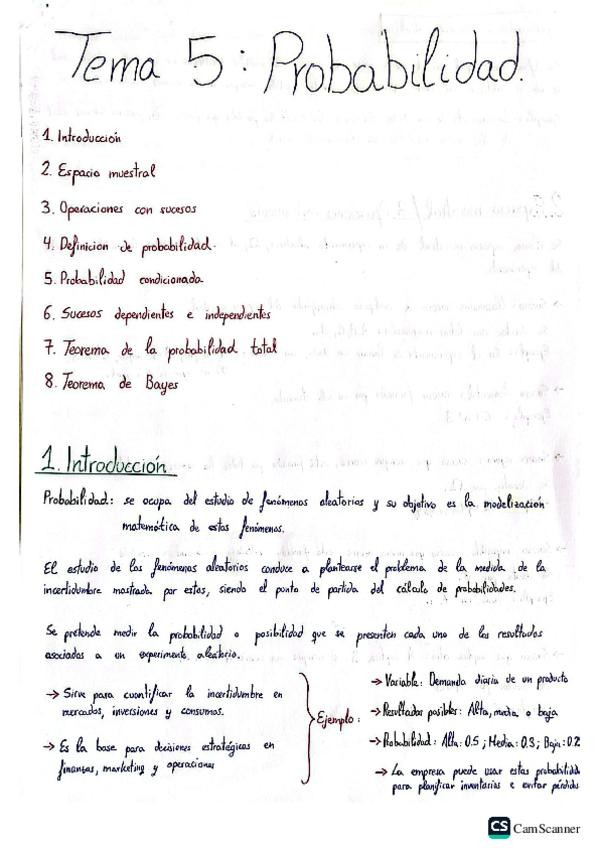 Tema 5: Probabilidad.
1. Introducción
2. Espacio muestral
3. Operaciones con sucesos
4. Definicion de probabilidad.
5. Probabilidad condicionada
6. Sucesos dependientes e independientes
7. Teorema de la probabilidad total
8. Teorema de Bayes
1. Introducción
Probabilidad: se ocupa del estudio de fenómenos aleatorios y su objetivo es la modelización
matemática de estos fenómenos.
El estudio de los fenómenos aleatorios conduce a plantearse el problema de la medida de la
incertidumbre mostrada por estos, siendo el punto de partida del cálculo de probabilidades.
Se pretende medir la probabilidad o posibilidad que se presenten cada uno de los resultados
asociados a un experimento aleatorio.
→ Sirve para cuantificar la incertidumbre en
mercados, inversiones y consumos.
→ Es la base para decisiones estratégicas en
finanzas, marketing y operaciones
Ejemplo:
→ Variable: Demanda diaria de un producto
→ Resultados posibles: Alta, media o baja
→ Probabilidad: Alta: 0.5; Media: 0.3; Baja: 0.2
→ La empresa puede usar estas probabilida
para planificar inventarios e evitar pérdidas
CS CamScanner